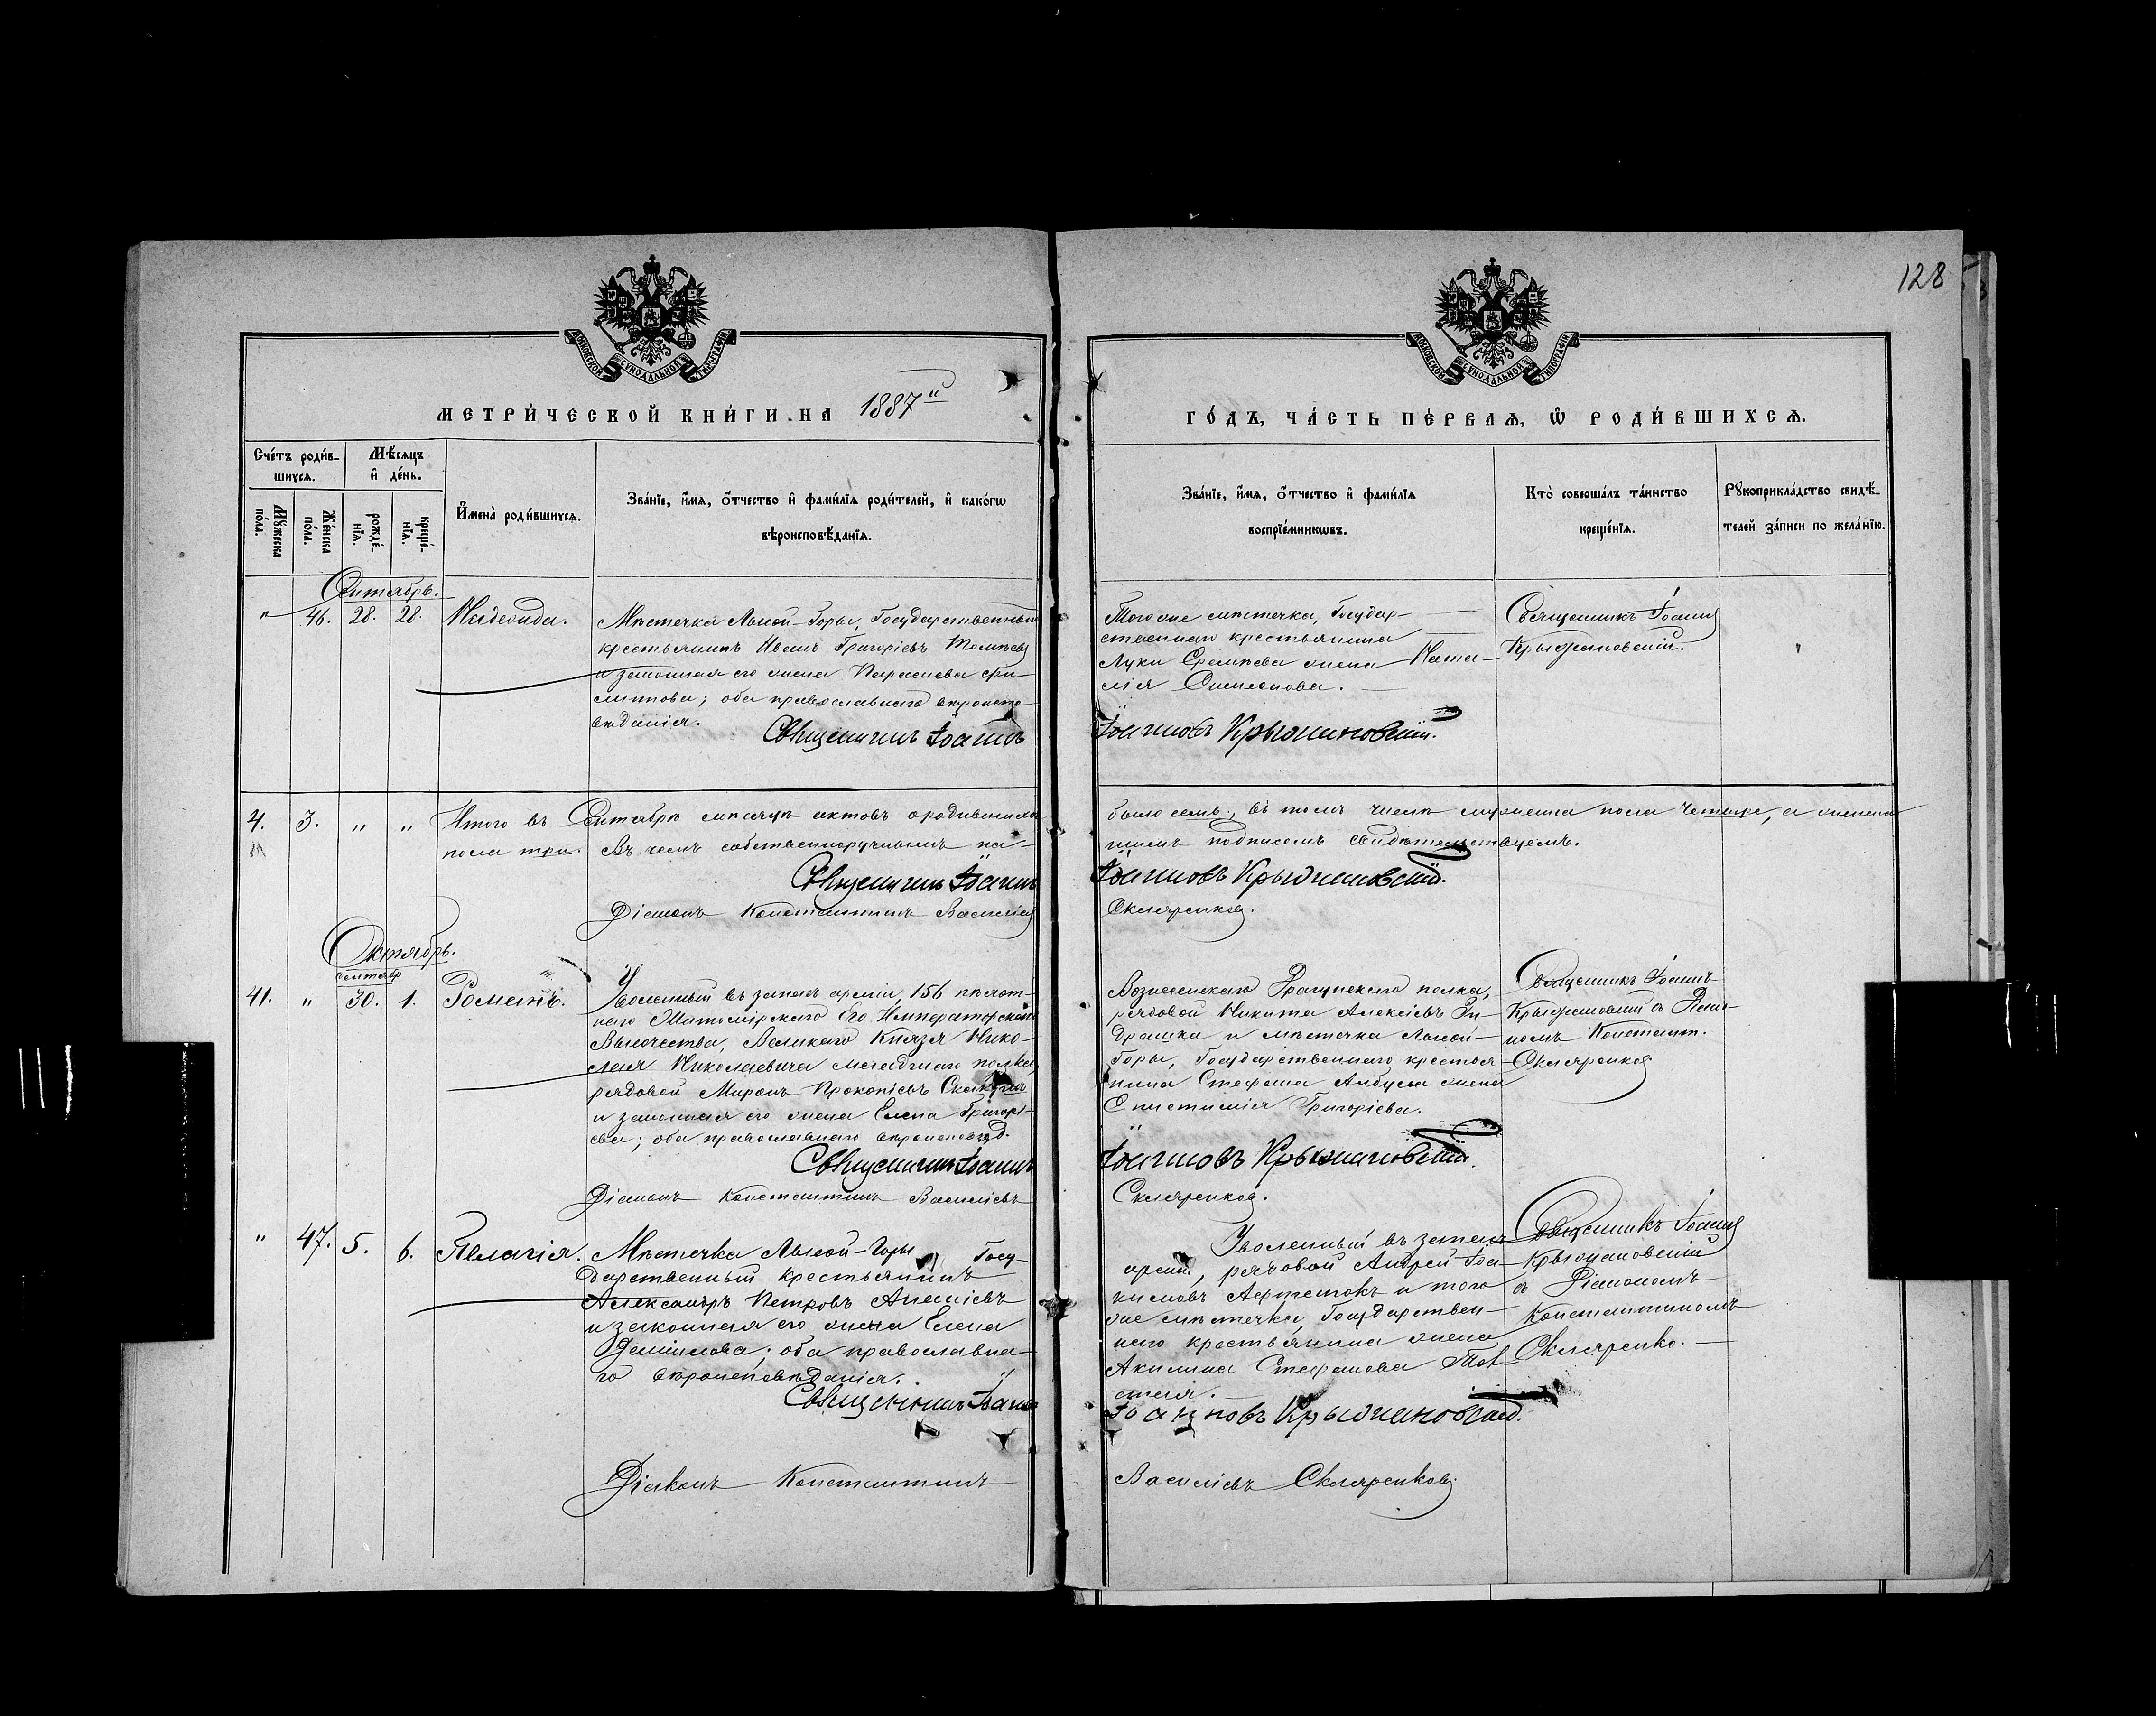 128
МОСКОВСКОЙ СѴНОДАЛЬНОЙ ТИПОГРАФІИ
МОСКОВСКОЙ СѴНОДАЛЬНОЙ ТИПОГРАФІИ
МЕТРИ́ЧЕСКОЙ КНИ́ГИ НА 1887й
ГО́ДЪ, ЧА́СТЬ ПЕ́РВАѦ, Ѡ РОДИ́ВШИХСѦ.
Сче́тъ роди́в-
шихся.
Мѣсяцъ
и де́нь.
Му́жеска
по́ла.
Же́нска
по́ла.
рожде́-
нїя.
креще́-
нїя.
Имена̀ роди́вшихся.
Зва́нїе, и́мя, о́тчество и фами́лїя роди́телей, и како́гѡ
вѣроисповѣ́данїя.
Зва́нїе, и́мя, о́тчество и фами́лїя
воспрїе́мникѡвъ.
Кто̀ соверша́лъ та́инство
креще́нїя.
Рꙋкоприкла́дство свидѣ́-
телей за́писи по жела́нїю.
Сентябрь.
" 46. 28. 28.
Мѣстечка Лысой-Горы, Государственный
крестьянинъ Иванъ Григоріевъ
и законная его жена Параскева Фи-
липпова; оба православнаго вѣроиспо-
вѣданія.
Священникъ Іоаннъ
Того же мѣстечка, Государ-
ственнаго крестьянина
Луки жена Ната-
лія Симеонова.
Іоанновъ Крыжановскій.
Священникъ Іоаннъ
Крыжановскій.
4. 3. " " Итого въ Сентябрѣ мѣсяцѣ актовъ о родившихся
пола три. Въ чемъ собственноручнымъ на-
Священникъ Іоаннъ
Діаконъ Константинъ Василіевъ
было семь, въ томъ числѣ мужеска пола четыре, а женска
шимъ подписомъ свидѣтельствуемъ.
Іоанновъ Крыжановскій.
Скляренковъ.
Октябрь.
сентябр
41. " 30. 1. Романъ.
Уволенный въ запасъ арміи, 156 пѣхот-
наго Житомірскаго Его Императорскаго
Высочества, Великаго Князя Нико-
лая Николаевича младшаго полка,
рядовой Миронъ Прокопіевъ
и законная его жена Елена Григорі-
ева; оба православнаго вѣроисповѣд.
Священникъ Іоаннъ
Діаконъ Константинъ Василіевъ
Вознесенскаго Драгунскаго полка,
рядовой Никита Алексіевъ Ан-
драшка и мѣстечка Лысой-
Горы, Государственнаго крестья-
нина Стефана жена
Епистимія Григоріева.
Іоанновъ Крыжановскій.
Скляренковъ.
Священникъ Іоаннъ
Крыжановскій съ Діако-
номъ Констант.
Скляренковъ
" 47. 5. 6. Пелагія.
Мѣстечка Лысой-Горы Госу-
дарственный крестьянинъ
Александръ Петровъ
и законная его жена Елена
Даніилова; оба православна-
го вѣроисповѣданія.
Священникъ Іоаннъ
Діаконъ Константинъ
Уволенный въ запасъ
арміи, рядовой Андрей Іоа-
кимовъ и того
же мѣстечка, Государствен-
наго крестьянина жена
Акилина Стефанова
Іоанновъ Крыжановскій.
Василіевъ Скляренковъ
Священникъ Іоаннъ
Крыжановскій
съ Діакономъ
Константиномъ
Скляренко.